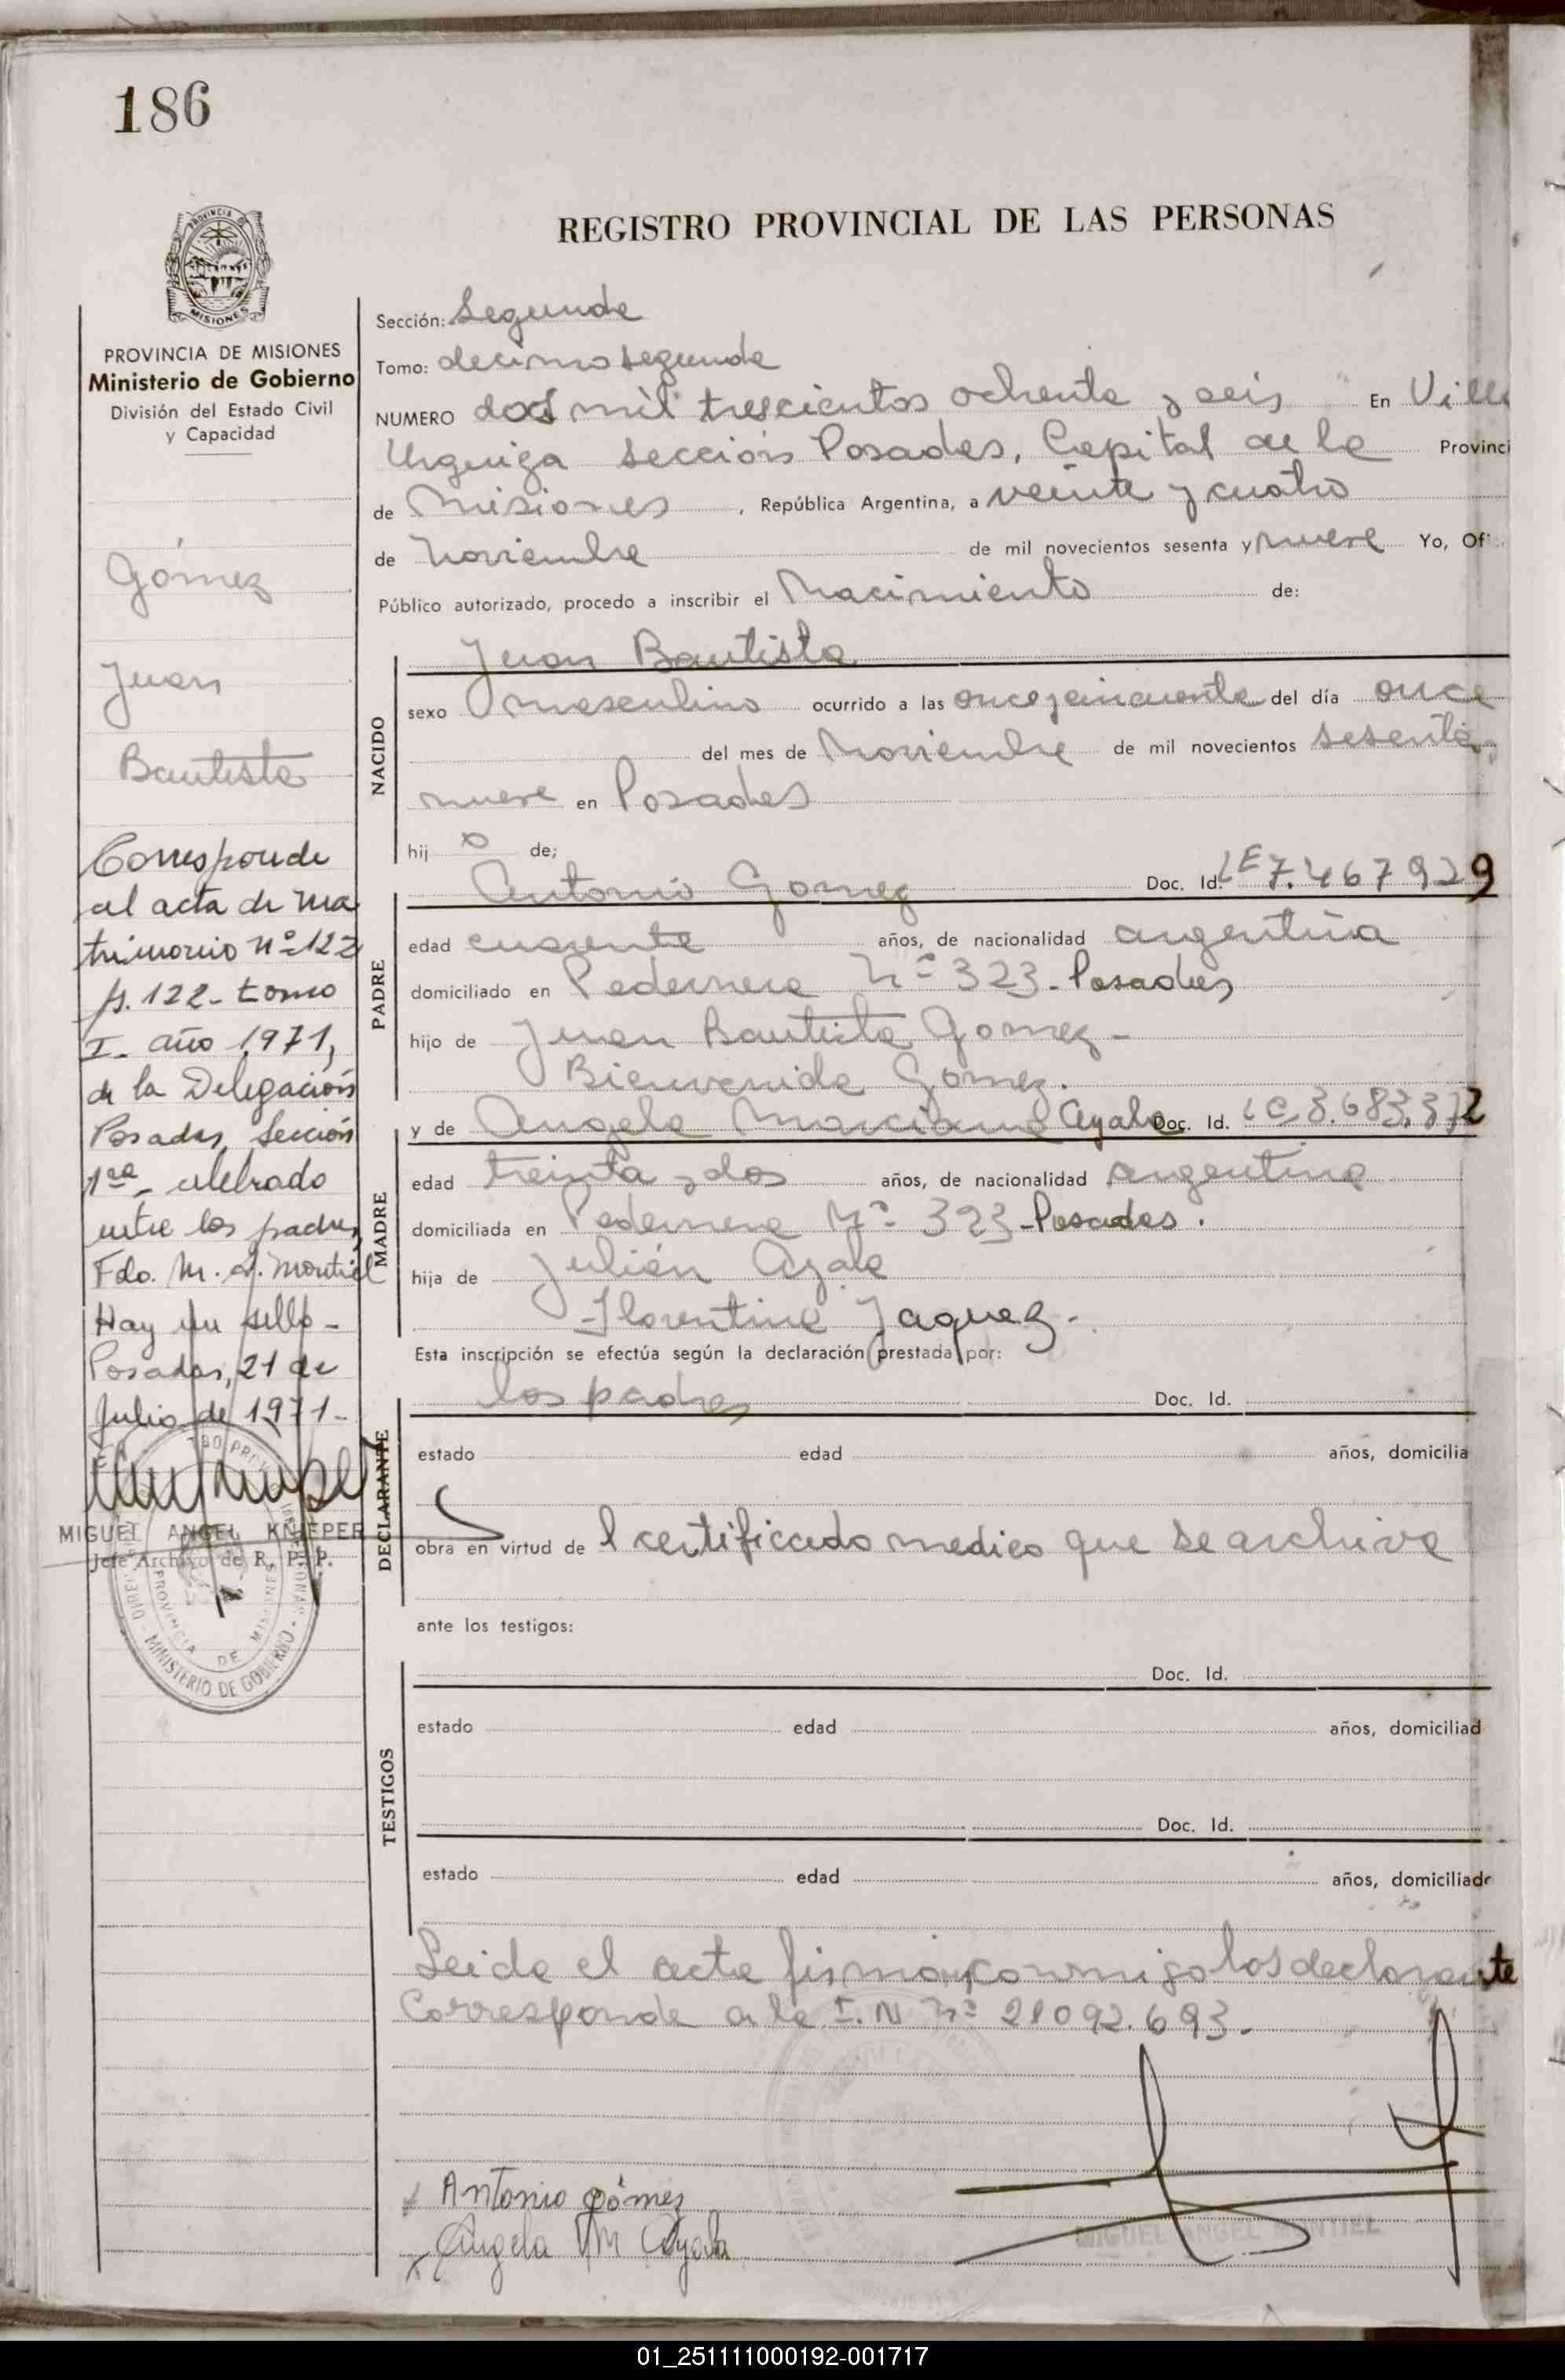 186
REGISTRO PROVINCIAL DE LAS PERSONAS
PROVINCIA DE MISIONES
Ministerio de Gobierno
División del Estado Civil
y Capacidad
Gómez
Juan
Bautista
Corresponde
al acta de ma
trimonio nº 122
fs. 122 - tomo
I - año 1971,
de la Delegación
Posadas, Sección
1ra - celebrado
entre los padres
Fdo. M. A. Montiel
Hay un sello -
Posadas, 21 de
Julio de 1971 -
MIGUEL ANGEL KNEPER
Jefe Archivo de R. P. P.
MINISTERIO DE GOBIERNO
PROVINCIA DE MISIONES
Sección: Segunda
Tomo: decimo segundo
NUMERO dos mil trescientos ochenta y seis En Villa
Urquiza Sección Posadas, Capital de la Provinci
de Misiones, República Argentina, a veinte y cuatro
de Noviembre de mil novecientos sesenta y nueve Yo, Of
Público autorizado, procedo a inscribir el Nacimiento de:
NACIDO
Juan Bautista
sexo masculino ocurrido a las once y cincuenta del día once
del mes de Noviembre de mil novecientos sesenta y
nueve en Posadas
hij o de;
PADRE
Antonio Gomez Doc. Id. LE 7.467929
edad cuarenta años, de nacionalidad argentina
domiciliado en Pedernera Nº 323 - Posadas
hijo de Juan Bautista Gomez -
Bienvenida Gomez.
MADRE
y de Angela Marciana Ayala Doc. Id. LC 3.683.372
edad treinta y dos años, de nacionalidad argentina
domiciliada en Pedernera Nº 323 - Posadas.
hija de Julián Ayala
Florentina Jaquez -
Esta inscripción se efectúa según la declaración prestada por:
DECLARANTE
los padres Doc. Id.
estado edad años, domicilia
obra en virtud de l certificado medico que se archiva
ante los testigos:
TESTIGOS
Doc. Id.
estado edad años, domiciliad
Doc. Id.
estado edad años, domiciliado
Leida el acta firman conmigo los declarante
Corresponde a la I. N nº 21092.693.
Antonio gómez
Angela M Ayala
MIGUEL ANGEL MONTIEL
01_251111000192-001717